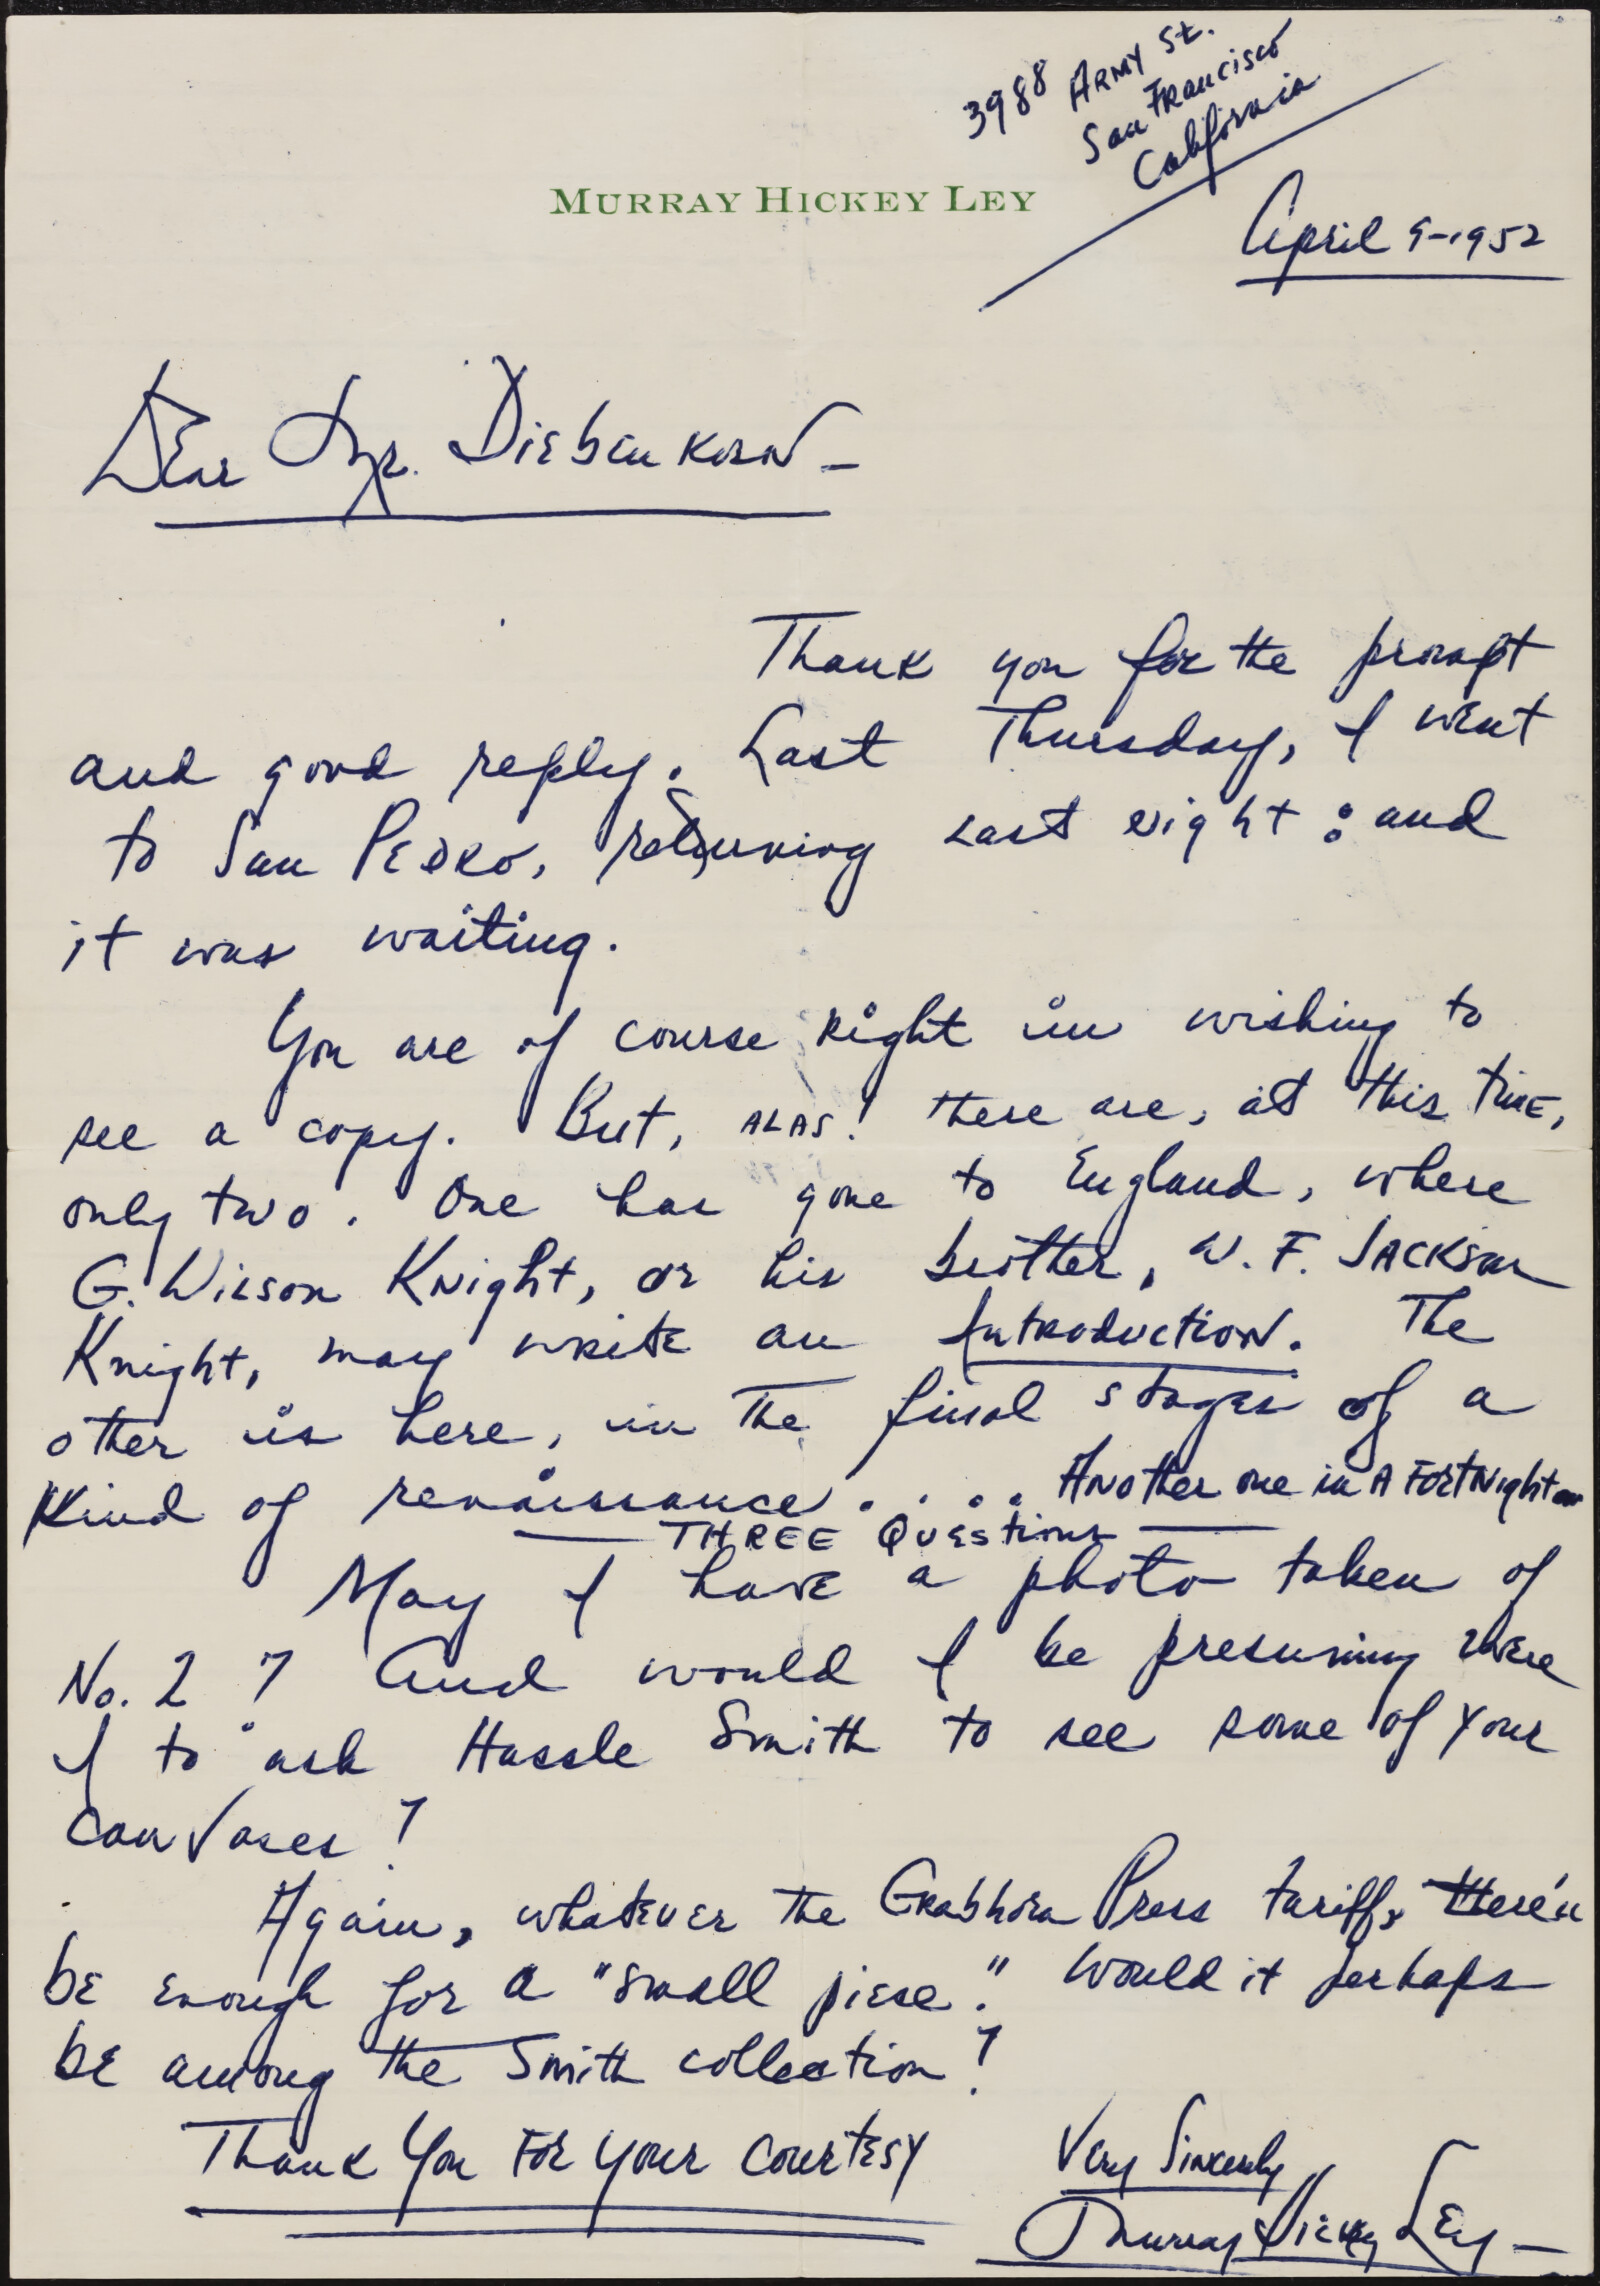 3988 Army St.
San Francisco
California
MURRAY HICKEY LEY
April 9-1952
Dear Mr. Diebenkorn –
Thank you for the prompt
and good reply. Last Thursday, I went
to San Pedro, returning last night: and
it was waiting.
You are of course right in wishing to
see a copy. But, ALAS! there are, at this time,
only two. One has gone to England, where
G. Wilson Knight, or his brother, W. F. Jackson
Knight, may write an Introduction. The
other is here, in the final stages of a
kind of renaissance. . . . Another one in a fortnight or
THREE Questions
May I have a photo taken of
No. 2? And would I be presuming were
I to ask Hassle Smith to see some of your
canvases?
Again, whatever the Grabhorn Press tariff, there'll
be enough for a "small piese." Would it perhaps
be among the Smith collection?
Thank You For Your Courtesy
Very Sincerely
Murray Hickey Ley –